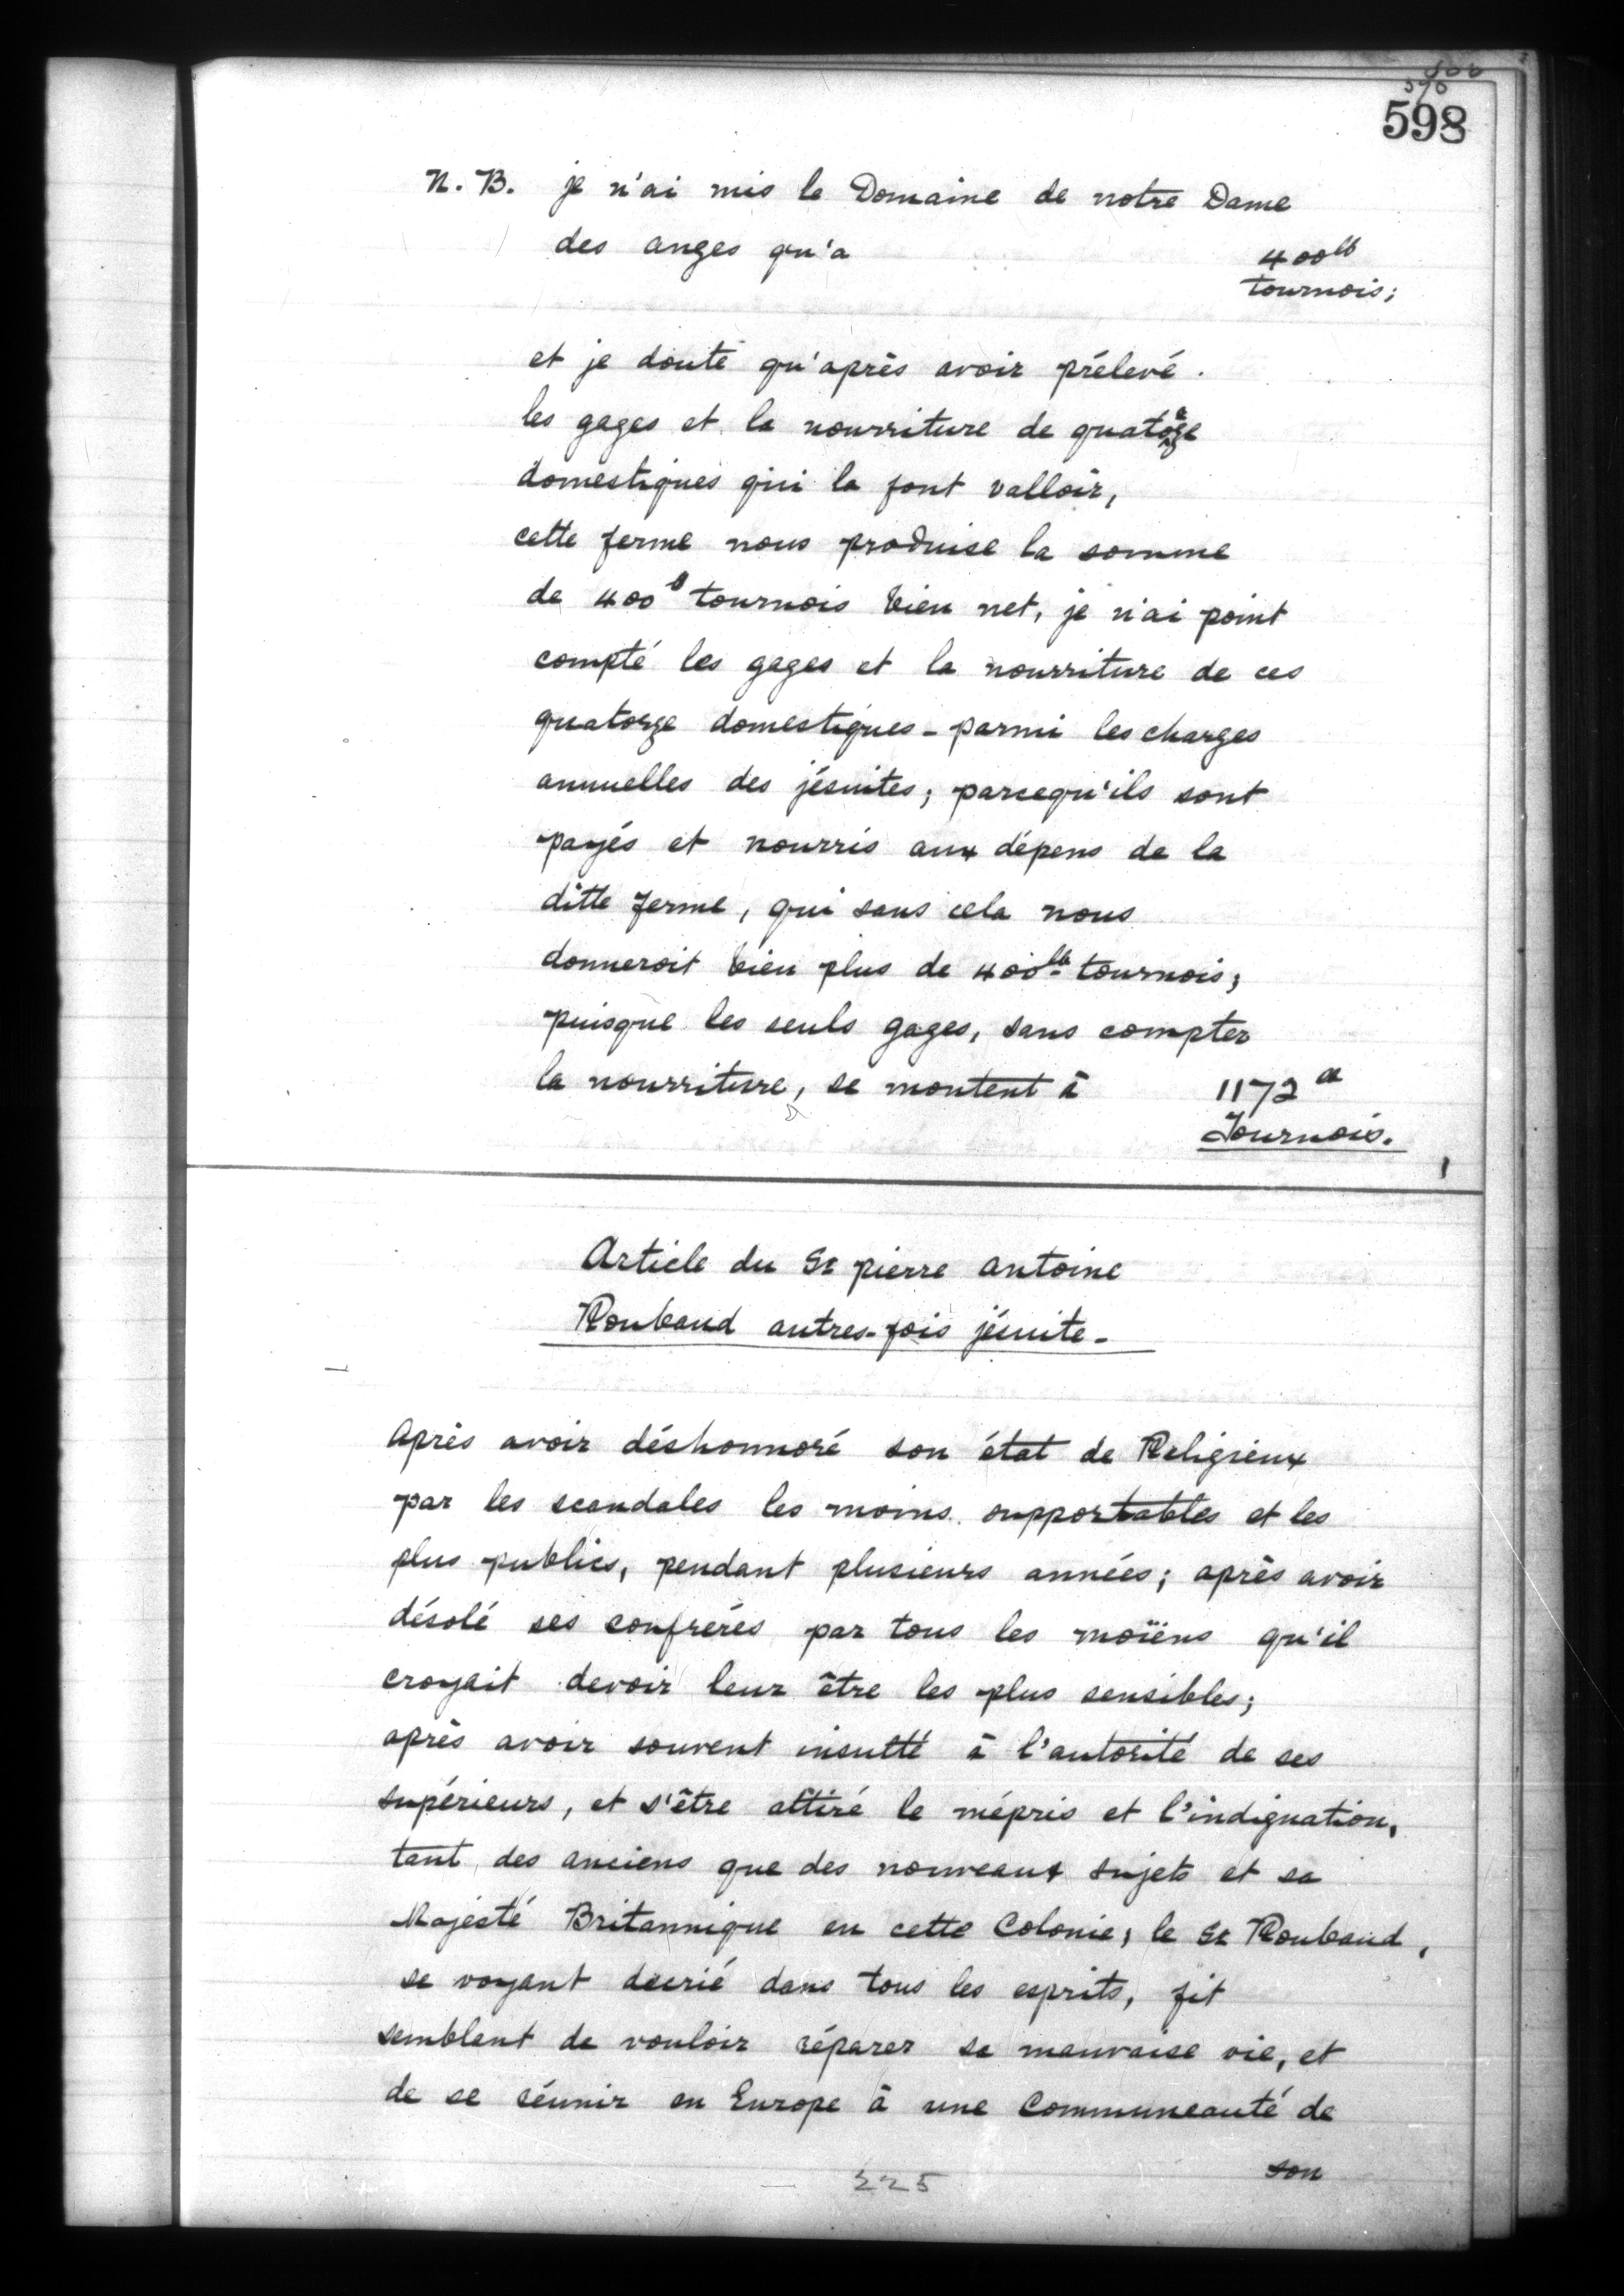 598
N.B. je n'ai mis le Domaine de notre Dame
des anges qu'a 400lt
tournois;
et je doute qu'après avoir prélevé.
les gages et la nourriture de quatorze
domestiques qui la font valloir,
cette ferme nous produise la somme
de 400lt tournois bien net, je n'ai point
compté les gages et la nourriture de ces
quatorze domestiques - parmi les charges
annuelles des jésuites; parcequ'ils sont
payés et nourris aux dépens de la
ditte ferme, qui sans cela nous
donneroit bien plus de 400lt tournois;
puisque les seuls gages, sans compter
la nourriture, se montent à 1172lt
Tournois.
Article du Sr pierre antoine
Roubaud autres-fois jésuite -
Après avoir déshonnoré son état de Religieux
par les scandales les moins supportables et les
plus publics, pendant plusieurs années; après avoir
désolé ses confrérés par tous les moïens qu'il
croyait devoir leur être les plus sensibles;
après avoir souvent insulté à l'autorité de ses
supérieurs, et s'être attiré le mépris et l'indignation,
tant des anciens que des nouveaux sujets et sa
Majesté Britannique en cette Colonie; le Sr Roubaud,
se voyant decrié dans tous les esprits, fit
semblant de vouloir réparer sa mauvaise vie, et
de se réunir en Europe à une Communeauté de
son
225